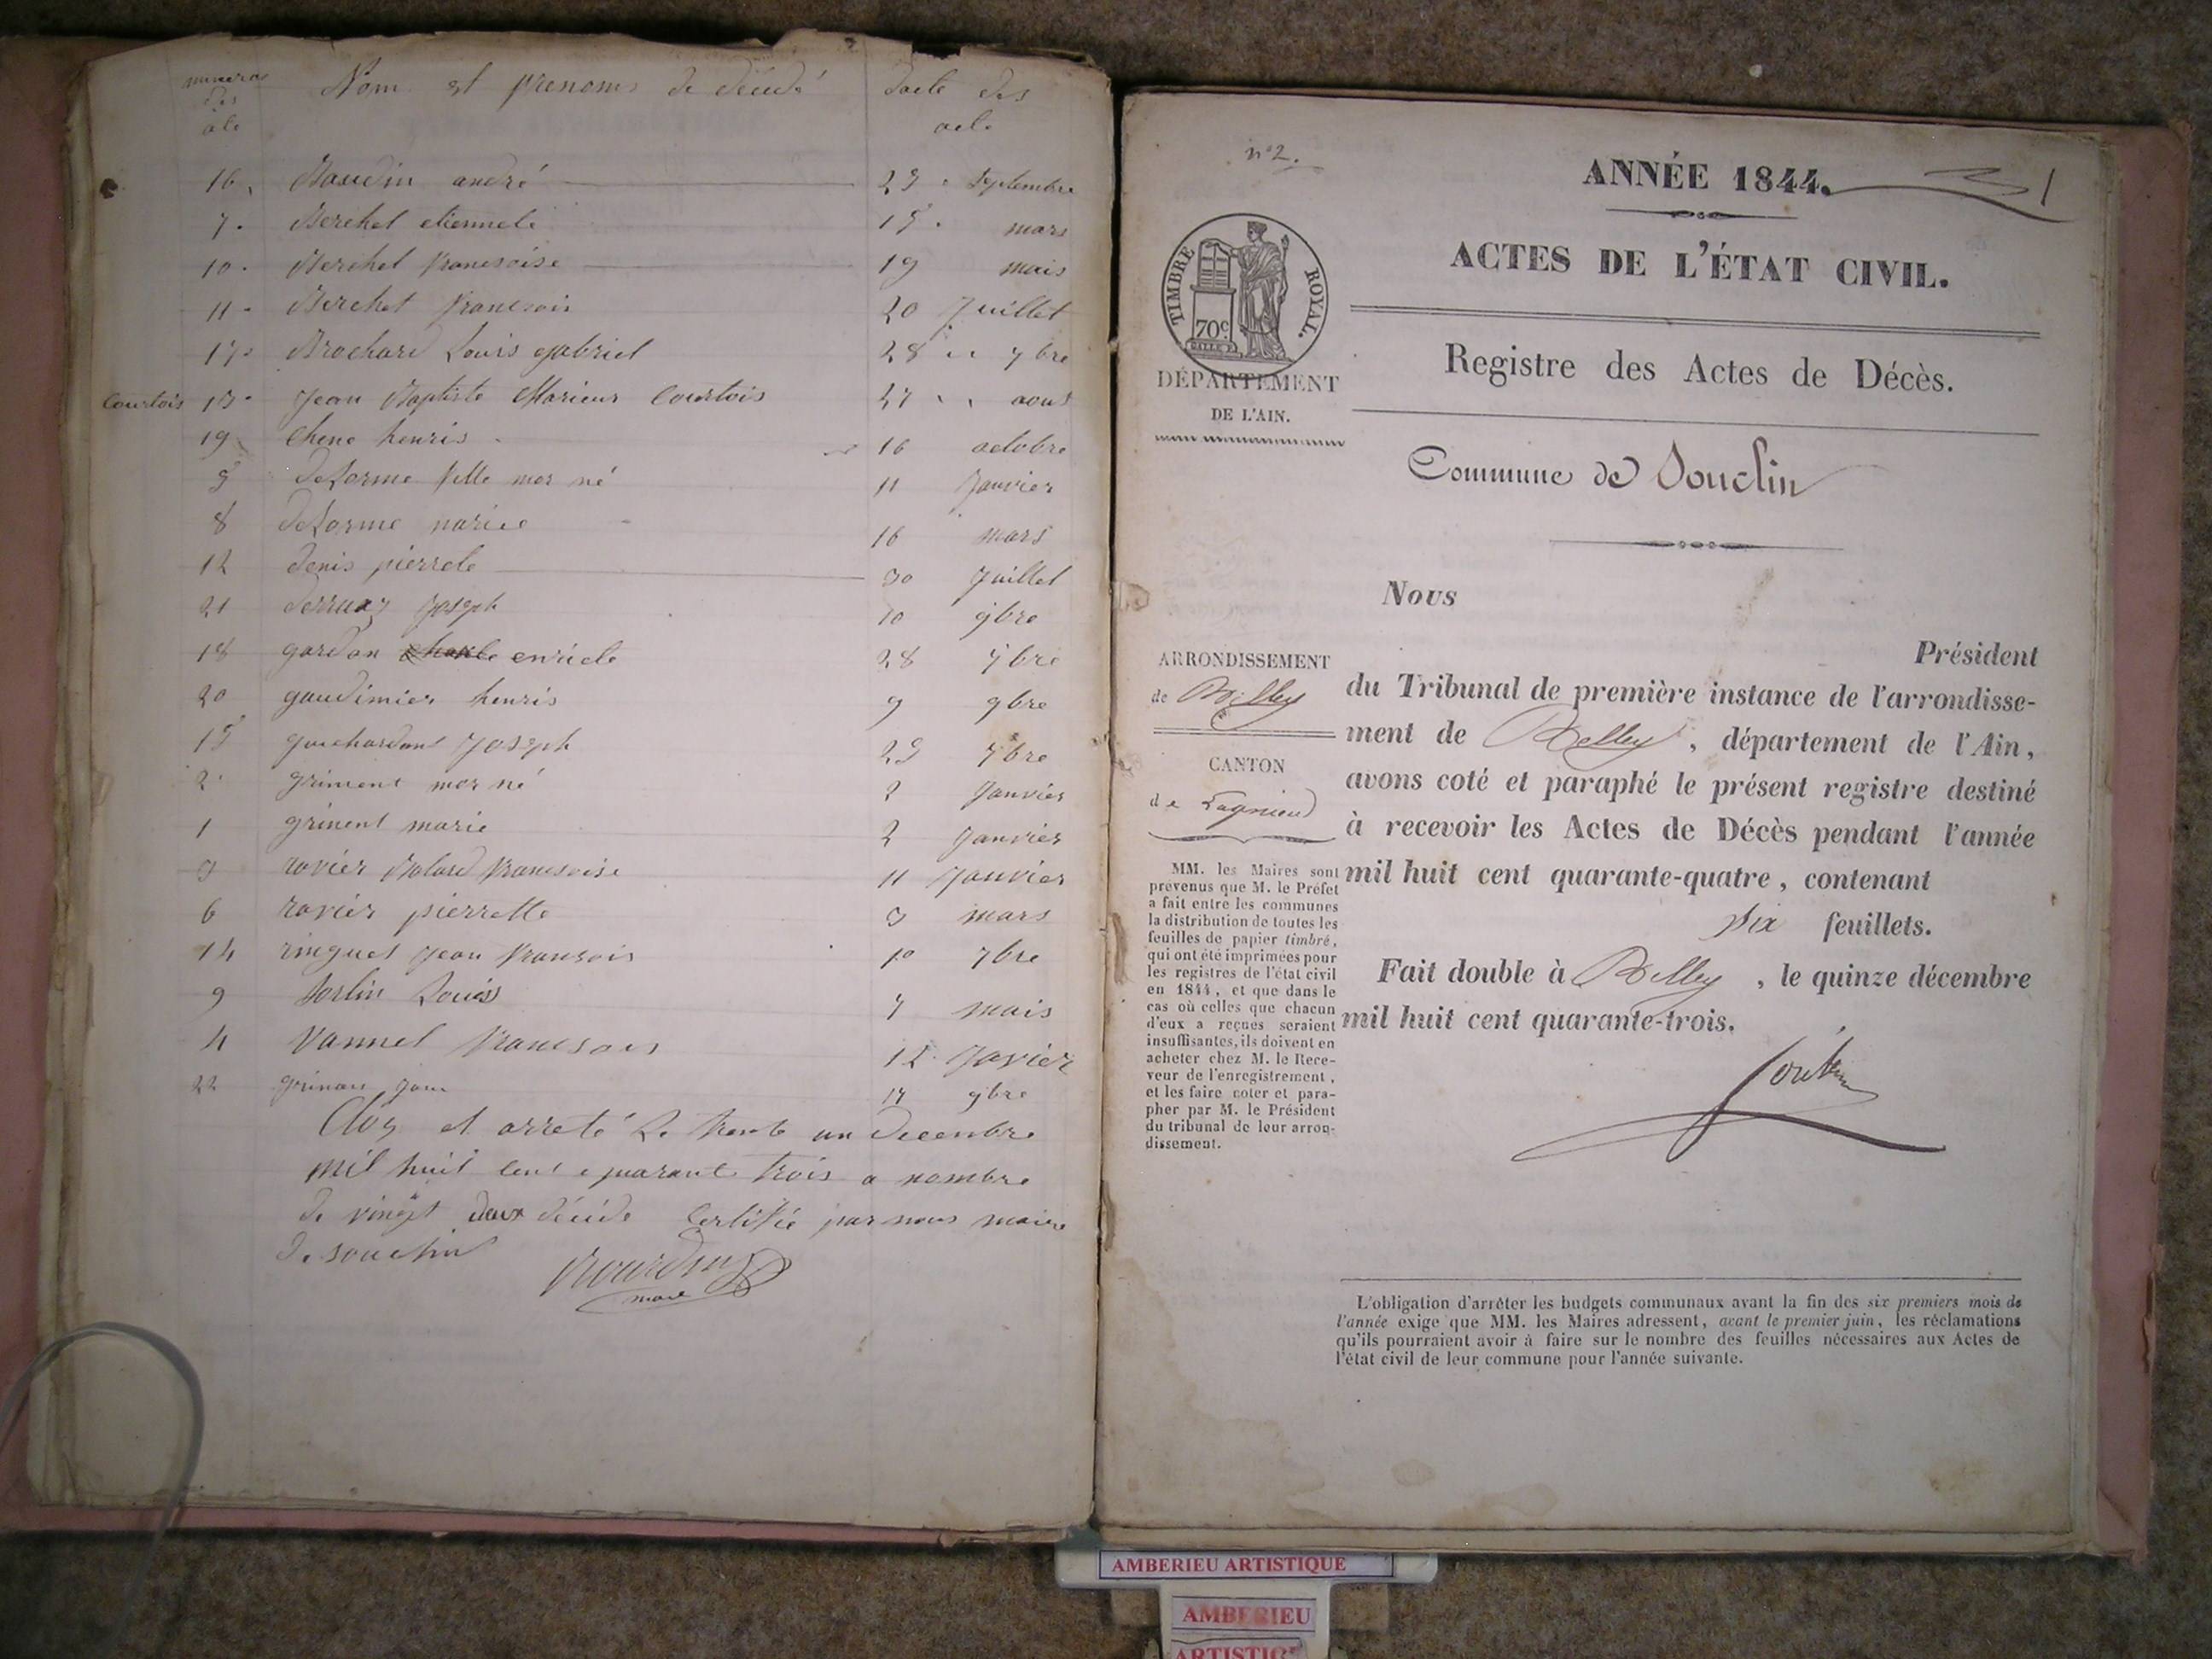 numeros des acte
Nom et prenoms de décédé
date des acte
16. Baudin andré 25 Septembre
7. Berchet etiennete 15 mars
10. Berchet francsoise 19 mais
11. Berchet francsois 20 Juillet
17. Brochard Louis gabriel 28 7bre
Courtois 13. Jean Baptiste Marieus Courtois 27 aout
19 Chene henris 16 octobre
5 Delorme fille mor né 11 Janvier
8 Delorme marie 16 mars
12 Denis pierrete 30 Juillet
21 Derruaz Joseph 10 9bre
18 gordan enriete 28 7bre
20 gaudimier henris 9 9bre
15 guichardant Joseph 25 7bre
2 griment mor né 2 Janvier
1 grinent marie 2 Janvier
3 ravier Bolard francsoise 11 Janvier
6 ravier pierrette 3 mars
14 ringuet Jean fransois 10 7bre
9 Sorlin Louis 7 mais
4 Vannel francsois 12 Javier
22 grinan 17 9bre
Clos et arreté Le trente un Decembre
mil huit cent quarante trois a nombre
de vingt deux décédé Certifié par nous maire
de souclin
Bourdin
maire
n°2.
ANNÉE 1844. 31
ACTES DE L'ÉTAT CIVIL.
TIMBRE ROYAL.
70c
DÉPARTEMENT
DE L'AIN.
Registre des Actes de Décès.
Commune de Souclin
Nous
Président
ARRONDISSEMENT
de Belley
CANTON
de Lagnieu
du Tribunal de première instance de l'arrondisse-
ment de Belley, département de l'Ain,
avons coté et paraphé le présent registre destiné
à recevoir les Actes de Décès pendant l'année
mil huit cent quarante-quatre, contenant
six feuillets.
Fait double à Belley, le quinze décembre
mil huit cent quarante-trois.
MM. les Maires sont
prévenus que M. le Préfet
a fait entre les communes
la distribution de toutes les
feuilles de papier timbré,
qui ont été imprimées pour
les registres de l'état civil
en 1844, et que dans le
cas où celles que chacun
d'eux a reçues seraient
insuffisantes, ils doivent en
acheter chez M. le Rece-
veur de l'enregistrement,
et les faire coter et para-
pher par M. le Président
du tribunal de leur arron-
dissement.
L'obligation d'arrêter les budgets communaux avant la fin des six premiers mois de
l'année exige que MM. les Maires adressent, avant le premier juin, les réclamations
qu'ils pourraient avoir à faire sur le nombre des feuilles nécessaires aux Actes de
l'état civil de leur commune pour l'année suivante.
AMBERIEU ARTISTIQUE
AMBERIEU
ARTISTIQUE